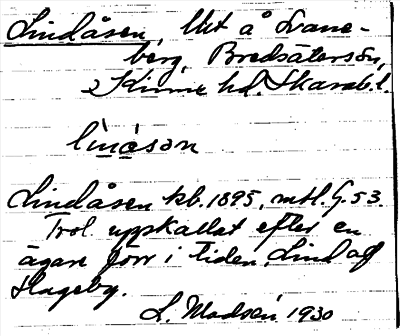 Lindåsen, Utt å Svane-
berg, Bredsäters sn,
Kinne hd. Skarab. l.
li̲nåsən
Lindåsen kb. 1895, mtl. G. 53.
Trol. uppkallat efter en
ägare förr i tiden, Lind af
Hageby.
L. Modsén 1930